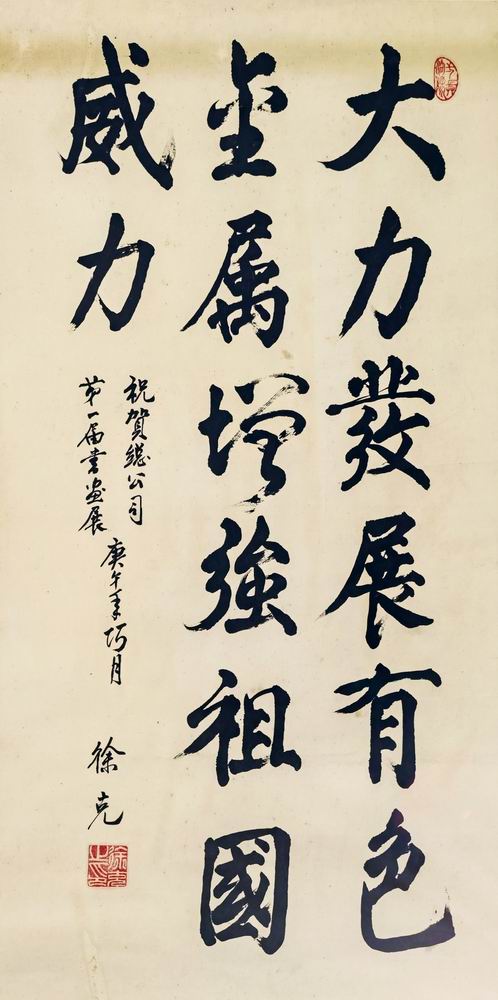 大力發展有色
金属增強祖國
威力
祝賀總公司
第一届書画展
庚午年巧月
徐克